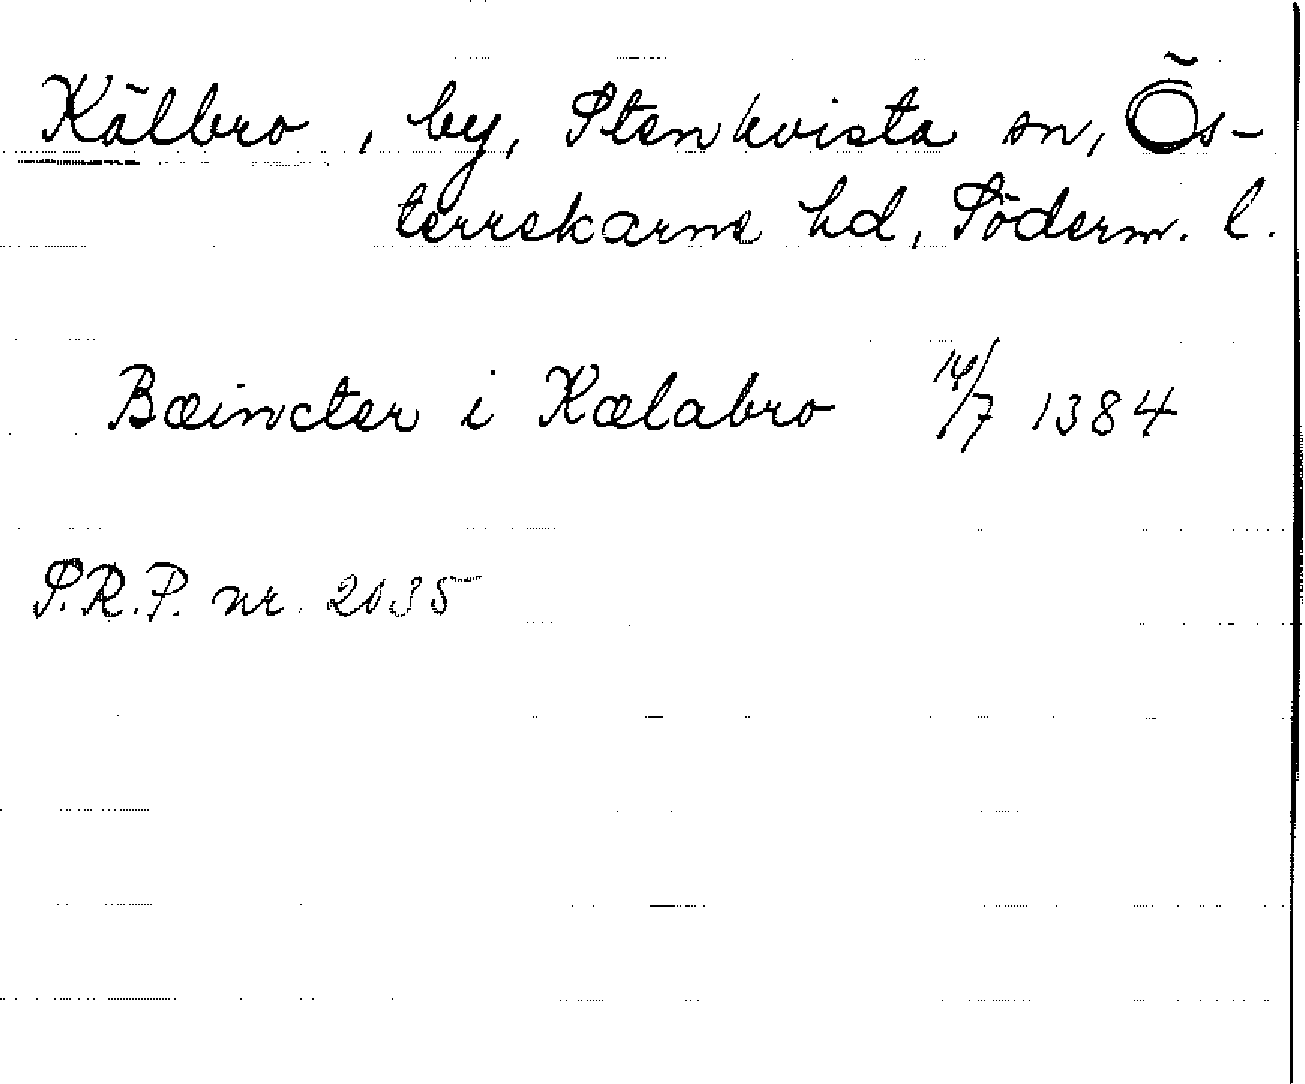 Kälbro, by, Stenkvista sn, Ös-
terrekarne hd, Söderm. l.
Bæincter i Kælabro 14/7 1384
S.R.P. nr. 2035